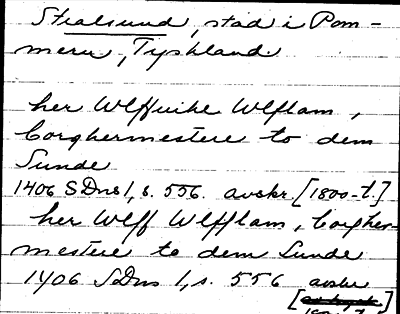 Stralsund, stad i Pom-
mern, Tyskland.
her Wlffuike Wlflam,
borghermestere to dem
Sunde
1406 SDns 1, s. 556. avskr. [1800-t.]
her Wlff Wlfflam, borgher-
mestere to dem Sunde
1406 SDns 1, s. 556 avskr